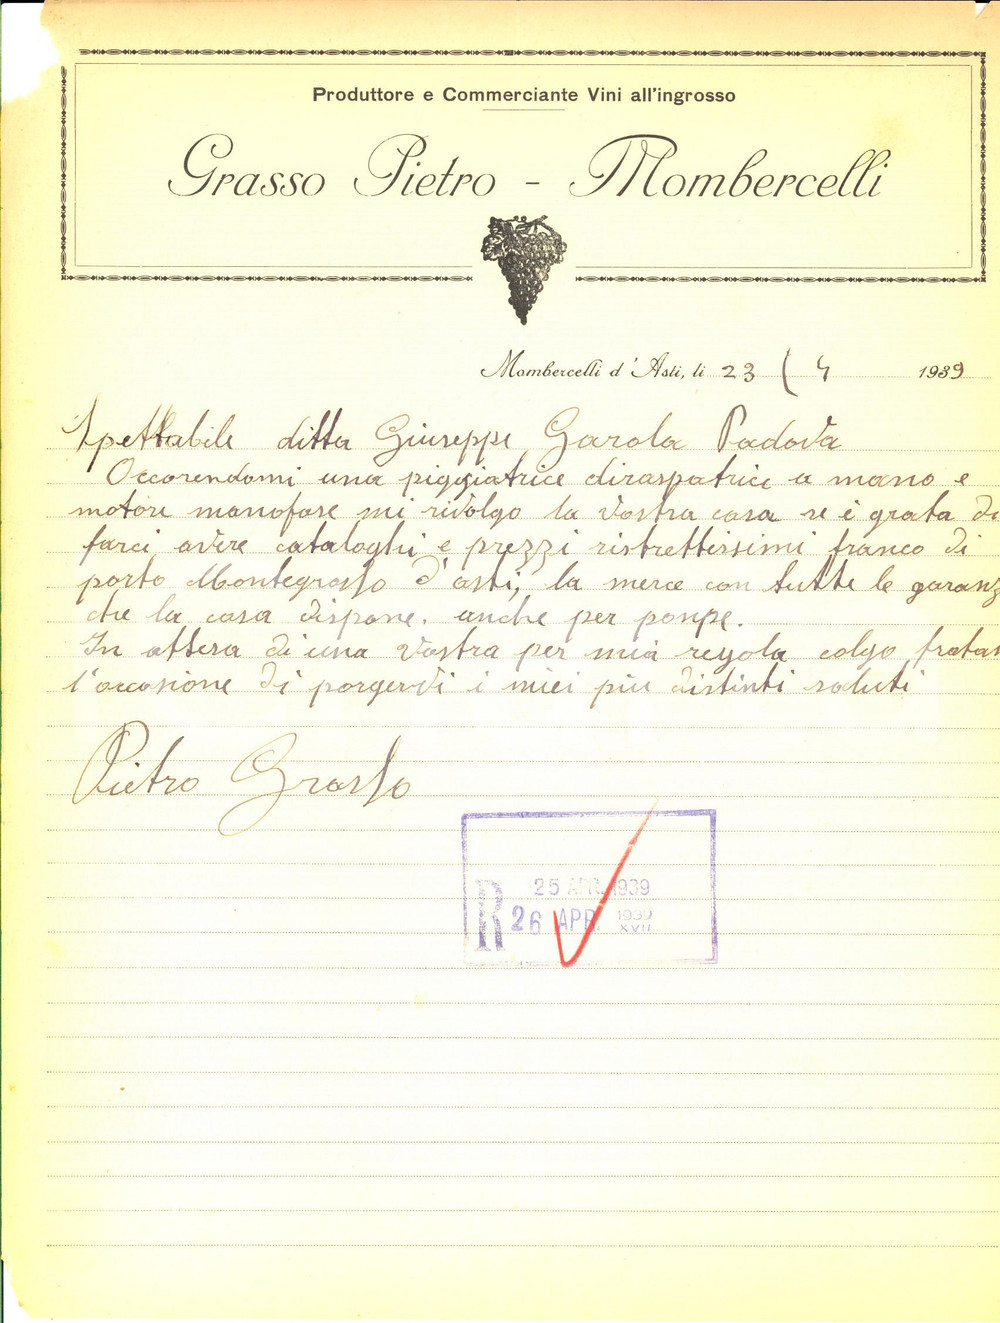 Produttore e Commerciante Vini all'ingrosso
Grasso Pietro - Mombercelli
Mombercelli d'Asti, li 23 / 4 1939
Spettabile ditta Giuseppe Garola Padova
Occorendomi una piggiatrice diraspatrice a mano e
motore manofase mi rivolgo la Vostra casa se è grata di
farci avere cataloghi e prezzi ristrettissimi franco di
porto Montegrosso d'asti, la merce con tutte le garanz
che la casa dispone. anche per ponpe.
In attesa di una Vostra per mia regola colgo fratan
l'occasione di porgervi i miei piu distinti saluti
Pietro Grasso
25 APR. 1939
R 26 APR. 1939
XVII